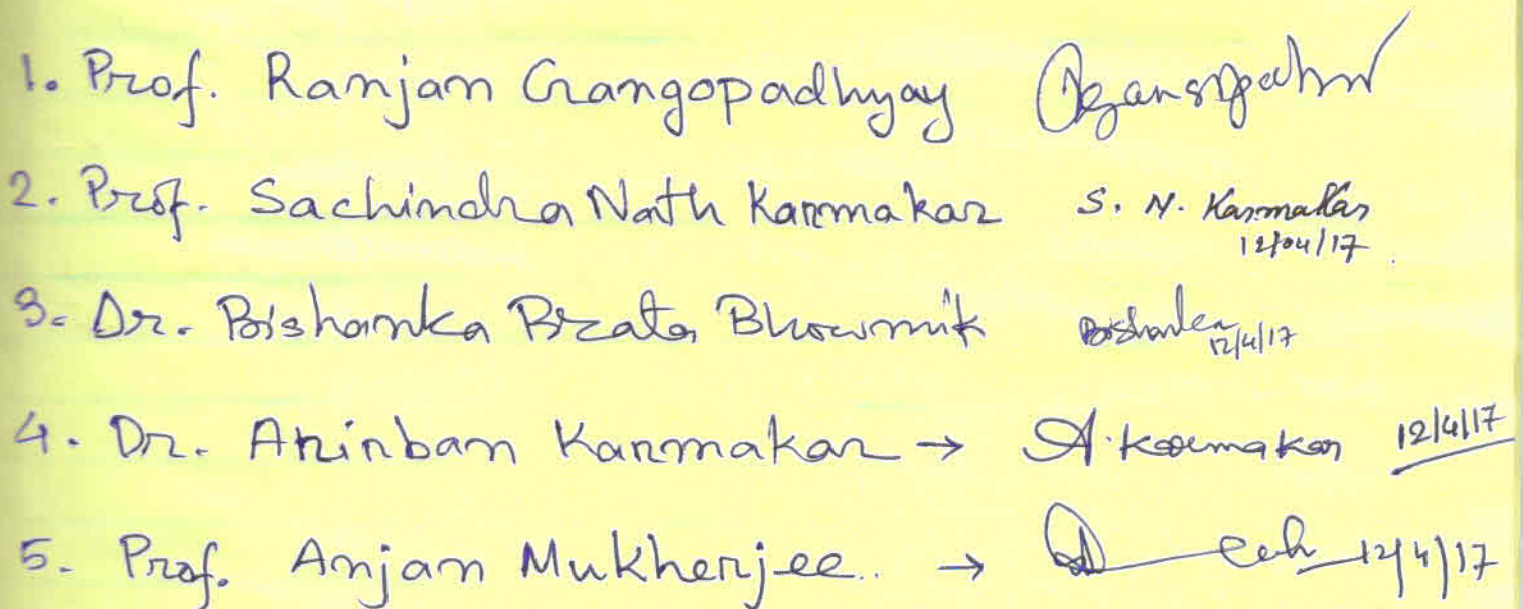 1. Prof. Ranjan Gangopadhyay
2. Prof. Sachindra Nath Karmakar S. N. Karmakar
12/04/17
3. Dr. Bishanka Brata Bhowmik 12/4/17
4. Dr. Anirban Karmakar → A. Karmakar 12/4/17
5. Prof. Anjan Mukherjee.. → 12/4/17